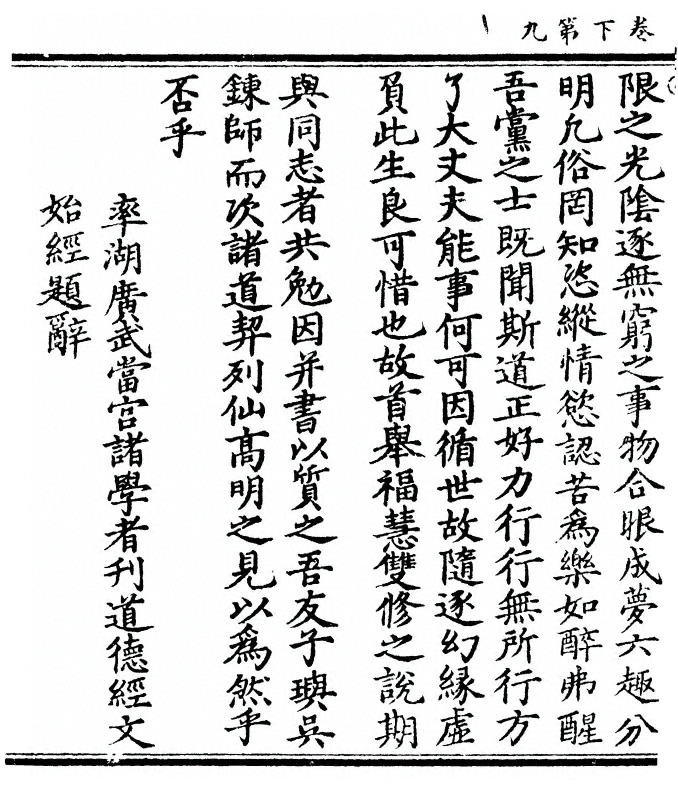 卷下第九
限之光陰逐無窮之事物合眼成夢六趣分
明凢俗罔知恣縱情慾認苦為樂如醉弗醒
吾黨之士既聞斯道正好力行行無所行方
了大丈夫能事何可因循世故隨逐幻緣虛
負此生良可惜也故首舉福慧雙修之說期
與同志者共勉因并書以質之吾友子璵吳
鍊師而次諸道契列仙高明之見以為然乎
否乎
率湖廣武當宮諸學者刊道德經文
始經題辭